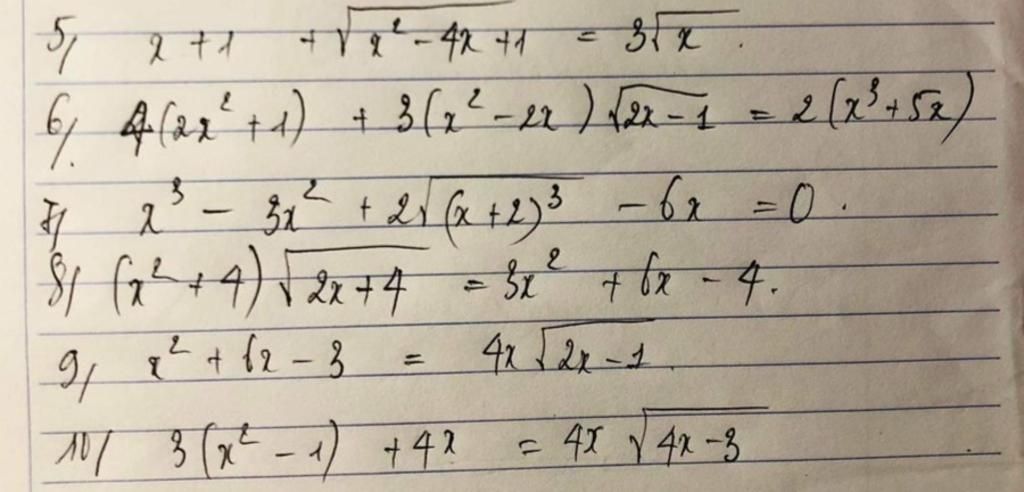 5) x + 1 + √(x² - 4x + 1) = 3√x.
6) 4(2x² + 1) + 3(x² - 2x)√(2x - 1) = 2(x³ + 5x)
7) x³ - 3x² + 2√((x + 2)³) - 6x = 0.
8) (x² + 4)√(2x + 4) = 3x² + 6x - 4.
9) x² + 6x - 3 = 4x√(2x - 1).
10) 3(x² - 1) + 4x = 4x√(4x - 3)